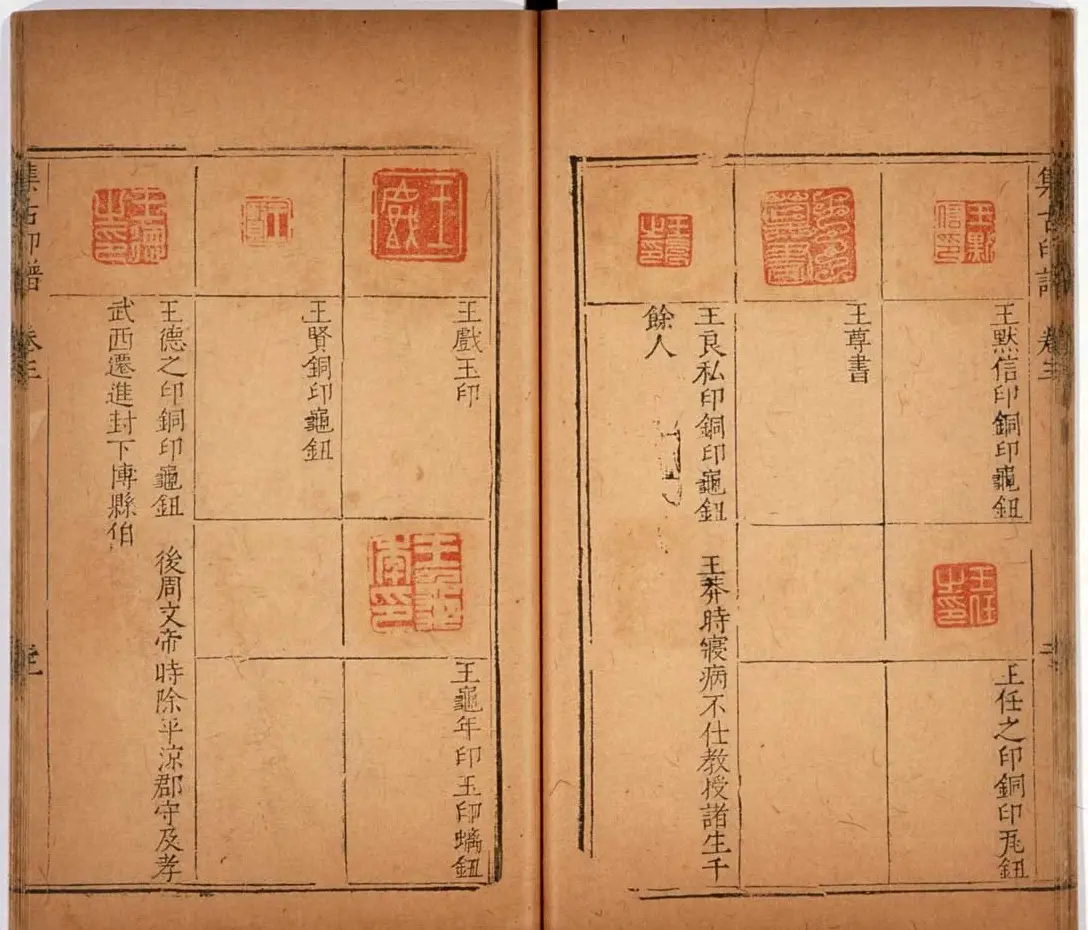 集古印譜
卷三
王默信印銅印龜鈕
王任之印銅印瓦鈕
王尊書
王良私印銅印龜鈕 王莽時寢病不仕教授諸生千
餘人
王戲
王戲玉印
王龜年印玉印螭鈕
王賢銅印龜鈕
王德之印
王德之印銅印龜鈕 後周文帝時除平涼郡守及孝
武西遷進封下博縣伯
集古印譜
卷三